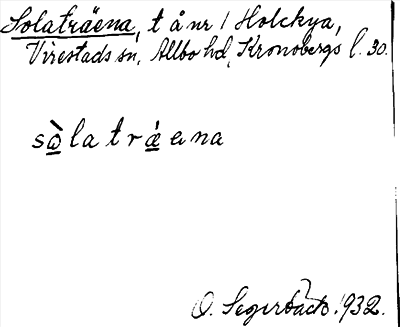 Solaträena, t å nr 1 Holckya,
Virestads sn, Allbo hd, Kronobergs l. 30.
sòlatrǽena
O. Segerbäck 1932.